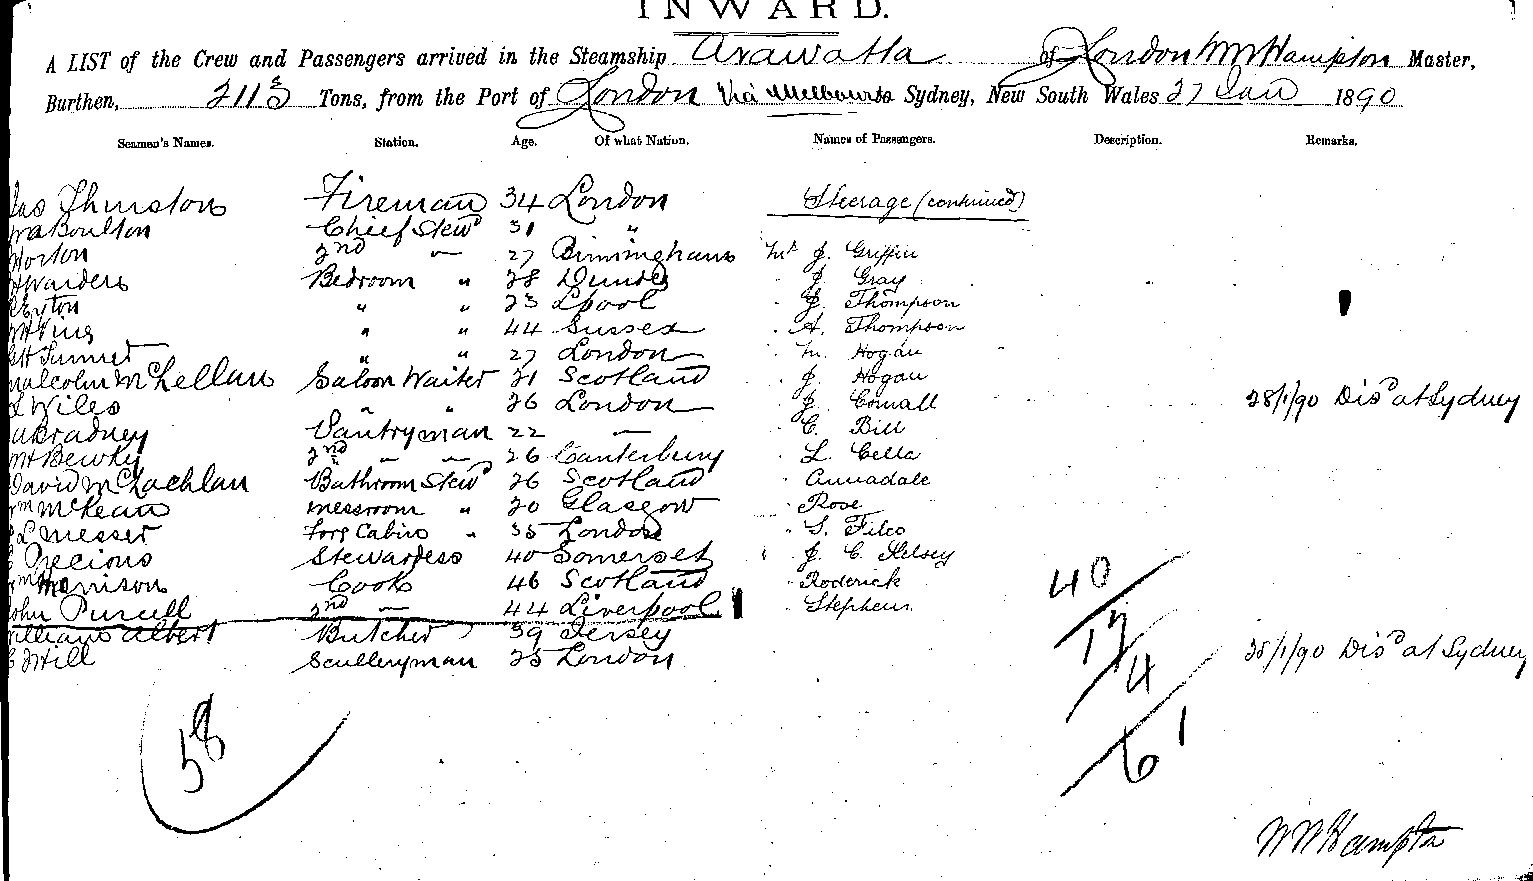 INWARD.
A LIST of the Crew and Passengers arrived in the Steamship Arawatta of London W M Hampton Master,
Burthen, 2113 Tons, from the Port of London Via Melbourne Sydney, New South Wales 27 Jan 1890
Seamen's Names. Station. Age. Of what Nation. Names of Passengers. Description. Remarks.
Jas Thurston Fireman 34 London Steerage (continued)
Boulton Chief Stewd 31 "
Horton 2nd " 27 Birmingham Mr J. Griffin
Warders Bedroom " 28 Dundee J. Gray
" " 23 Lpool J. Thompson
" " 44 Sussex A. Thompson
" " 27 London M. Hogan
Malcolm McLellan Saloon Waiter 21 Scotland J. Hogan
Wiles " " 26 London J. Cornall 28/1/90 Disd at Sydney
Bradney Pantryman 22 — C. Bill
2nd " " 26 Canterbury L. Cella
David McLachlan Bathroom Stewd 26 Scotland Annadale
Wm McKean Messroom " 20 Glasgow Rose
L Messer Fore Cabin " 35 London S. Files
Precious Stewardess 40 Somerset J. C. Kelsey
Wm Morrison Cook 46 Scotland Roderick
John Purcell 2nd " 44 Liverpool Stephens
William Albert Butcher 39 Jersey
Hill Sculleryman 25 London 28/1/90 Disd at Sydney
40
17
4
61
58
W M Hampton